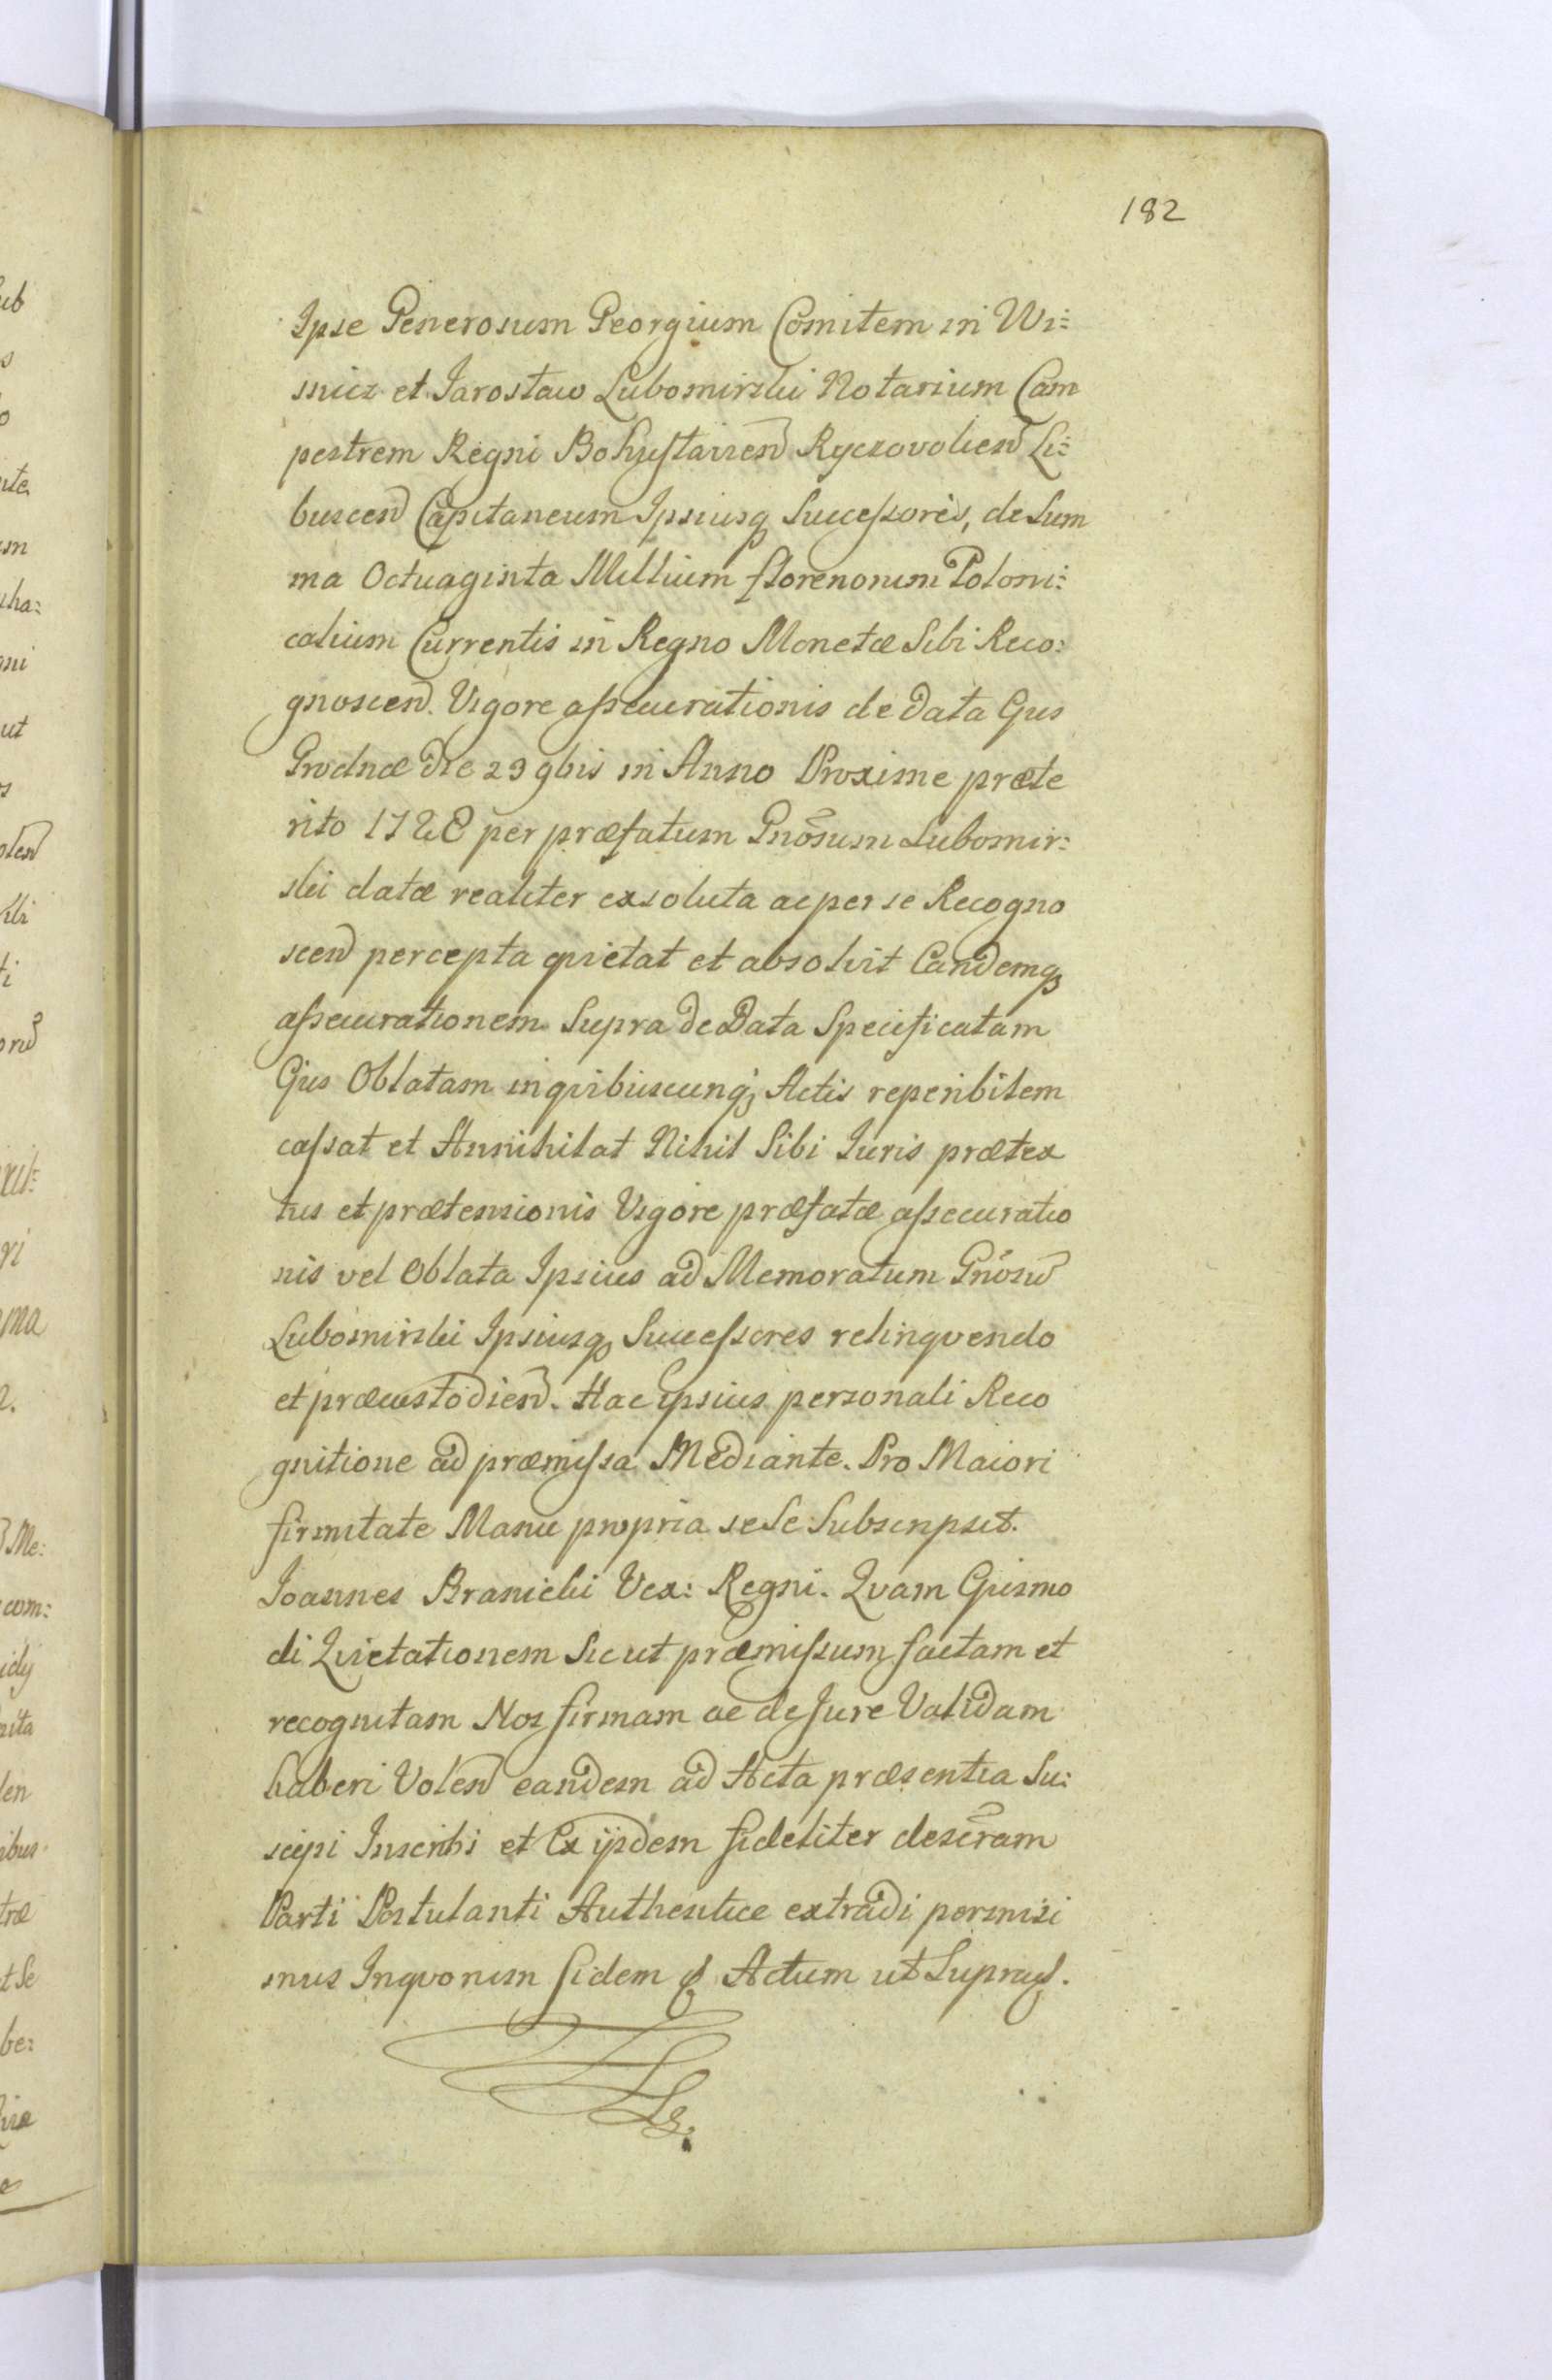 182
Ipse Generosum Georgium Comitem in Wi:
snicz et Jarosław Lubomirski Notarium Cam
pestrem Regni Bohuslavien Ryczovolien Li:
buscen Capitaneum Ipsiusq Successores, de Sum
ma Octuaginta Millium florenorum Poloni:
calium Currentis in Regno Monetæ Sibi Reco:
gnoscen. Vigore assecurationis de data Ejus
Grodnæ die 29 9bis in Anno Proxime præte
rito 1728 per præfatum Gnōsum Lubomir:
ski datæ realiter exsoluta ac per se Recogno
scen percepta qvietat et absolvit Eandemq
assecurationem Supra de Data Specificatam
Ejus Oblatam in qvibuscunq; Actis reperibilem
cassat et Annihilat Nihil Sibi Iuris prætex
tus et prætensionis Vigore præfatæ assecuratio
nis vel Oblata Ipsius ad Memoratum Gnōsum
Lubomirski Ipsiusq Successores relinqvendo
et præcustodien. Hac ipsius personali Reco
gnitione ad præmissa Mediante. Pro Maiori
firmitate Manu propria sese Subscripsit.
Joannes Branicki Vex: Regni. Qvam Ejusmo
di Qvietationem Sic ut præmissum factam et
recognitam Nos firmam ac de Jure Validam
haberi Volen eandem ad Acta præsentia Su:
scipi Inscribi et Ex ijsdem fideliter descr̄am
Parti Postulanti Authentice extradi permisi
mus Inqvorum fidem & Actum ut Supra.